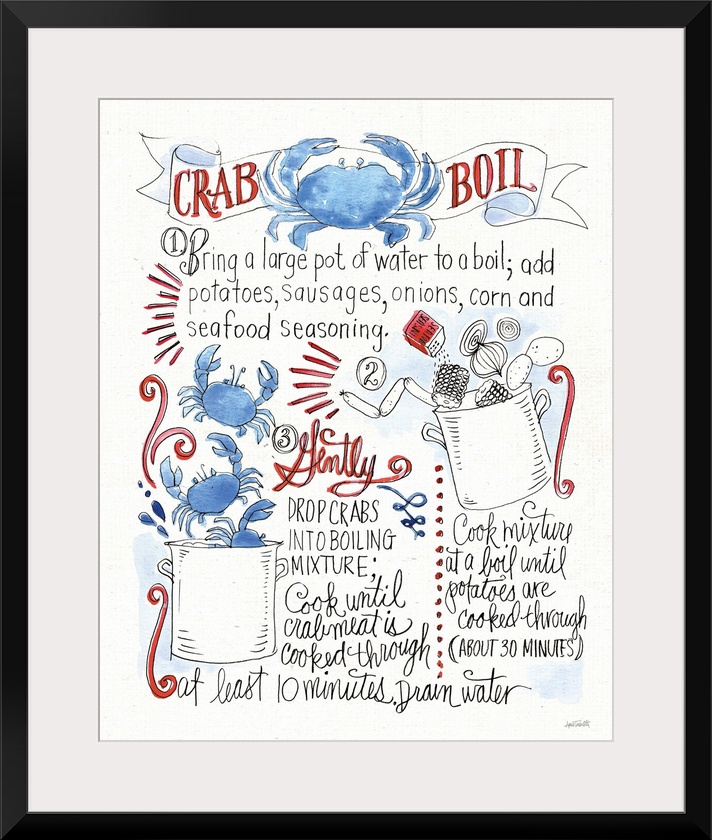 CRAB BOIL
1 Bring a large pot of water to a boil; add
potatoes, sausages, onions, corn and
seafood seasoning.
2
Cook mixture
at a boil until
potatoes are
cooked through
(ABOUT 30 MINUTES)
3 Gently
DROP CRABS
INTO BOILING
MIXTURE;
Cook until
crabmeat is
cooked through
at least 10 minutes. Drain water